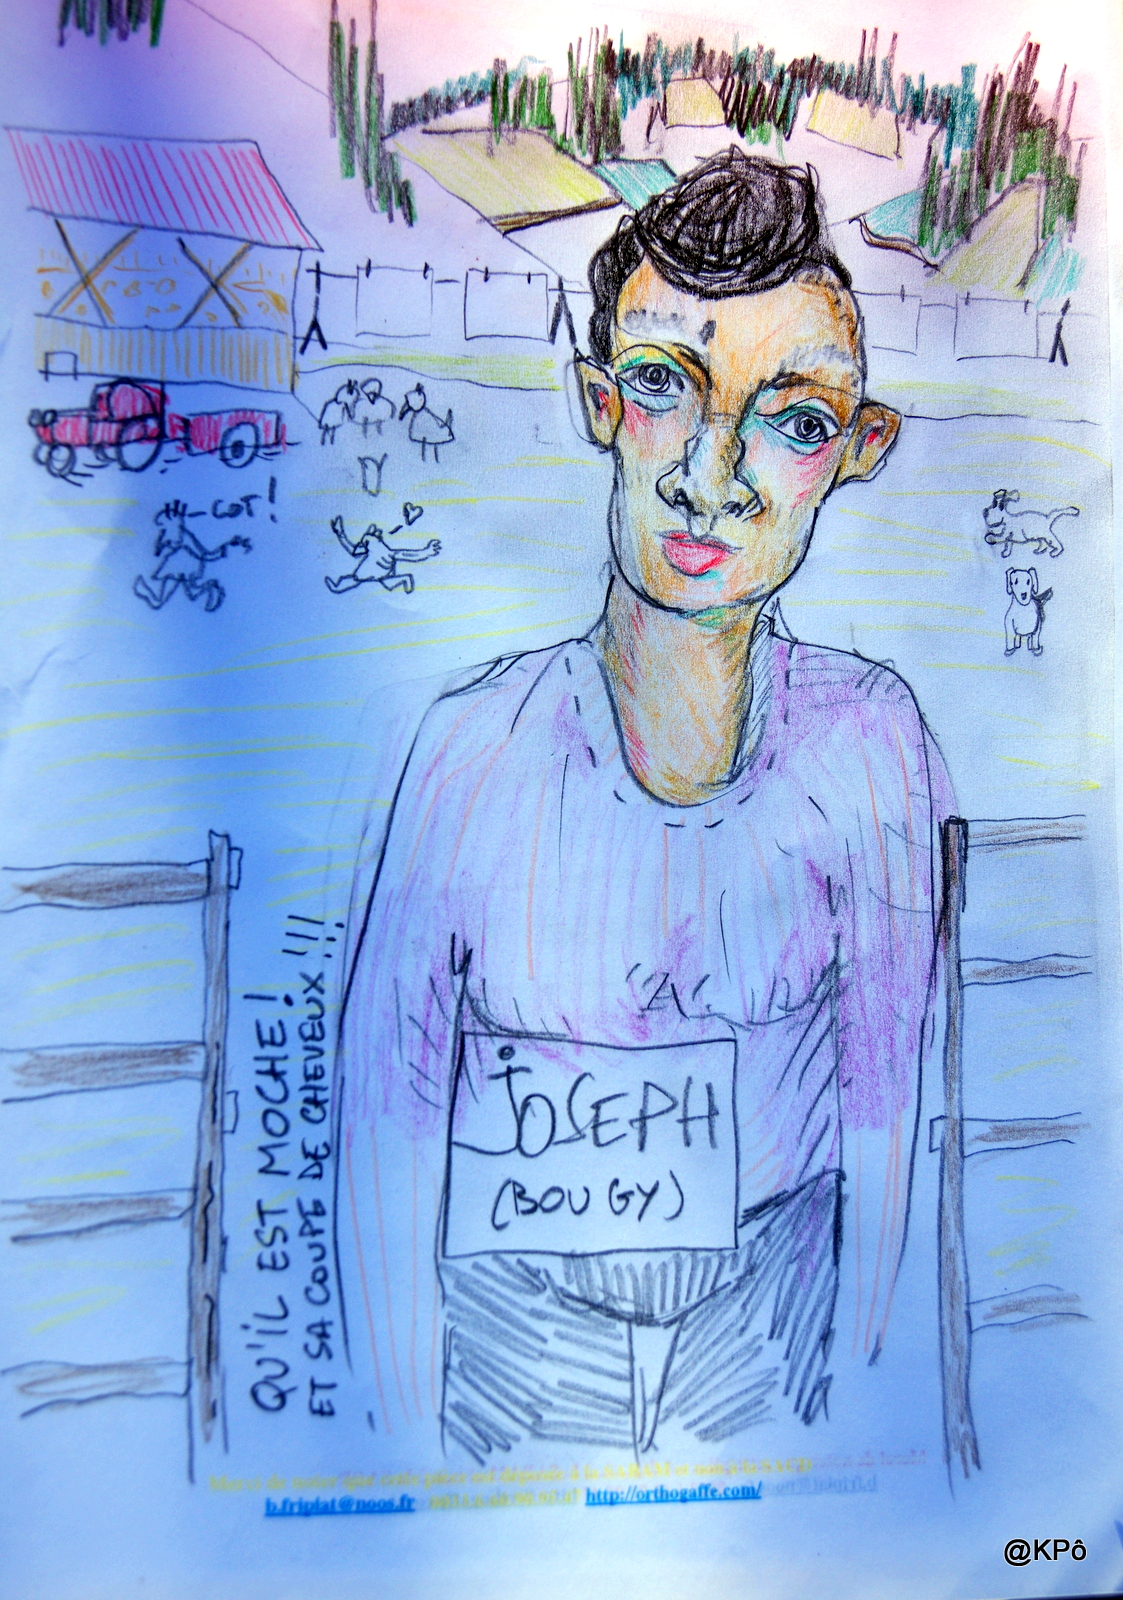 COT!
QU'IL EST MOCHE!
ET SA COUPE DE CHEVEUX!!!
JOSEPH
(BOUGY)
Merci de noter que cette pièce est déposée à la SABAM et non à la SACD
b.friplat@noos.fr http://orthogaffe.com/
@KPô